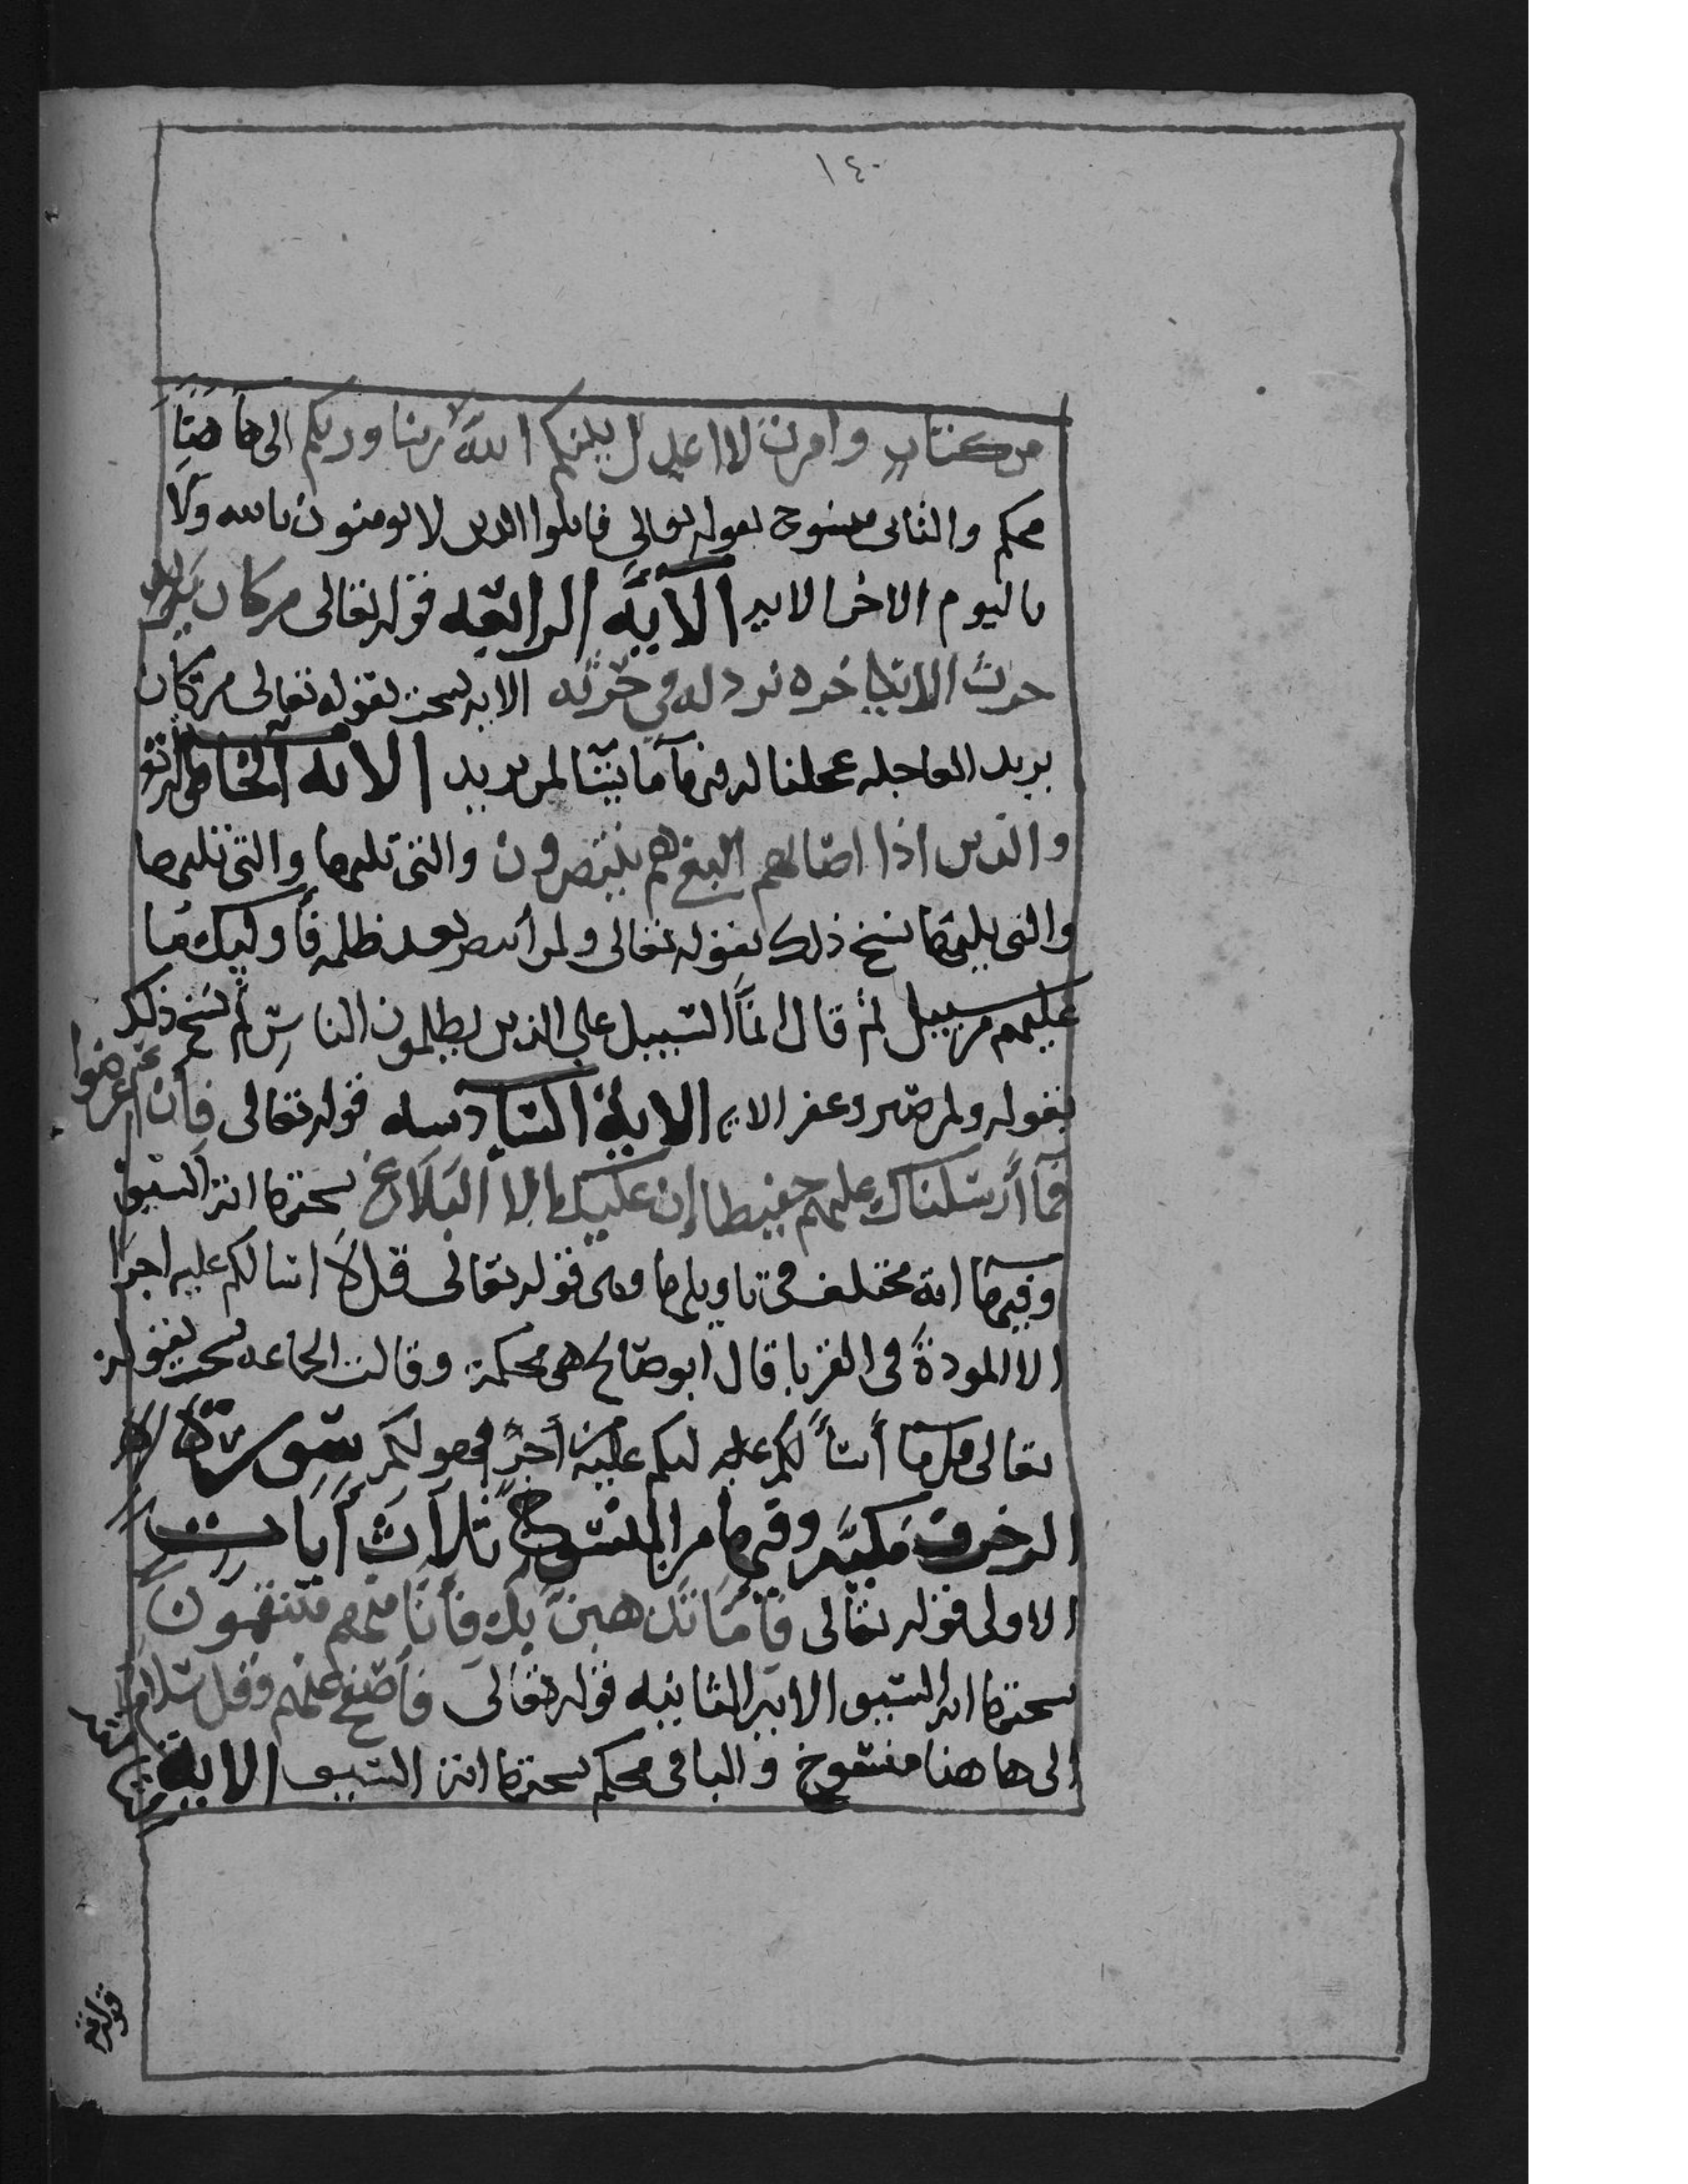 ١٤٠
من كتاب وامرت لا اعدل بينكم الله ربنا وربكم الى هاهنا
محكم والثانى منسوخ بقوله تعالى قاتلوا الذين لا يومنون بالله ولا
باليوم الاخر الايه الآيه الرابعه قوله تعالى من كان يريد
حرث الاخره نزد له في حرثه الايه نسخت بقوله تعالى من كان
يريد العاجله عجلنا له فيها ما يشا لمن يريد الايه الخامسه
والذين اذا اصابهم البغي هم ينتصرون والتى تليها والتى تليها
والتى يليها نسخ ذلك بقوله تعالى ولمن انتصر بعد ظلمه فأوليك ما
عليهم من سبيل ثم قال انما السبيل على الذين يظلمون الناس ثم نسخ ذلك
بقوله ولمن صبر وغفر الايه الاية السادسه قوله تعالى فان اعرضوا
فما أرسلناك عليهم حفيظا إن عليك الا البلاغ نسختها اية السيف
وفيها اية مختلف في تاويلها وهى قوله تعالى قل لا اسالكم عليه اجرا
الا المودة في القربا قال ابو صالح هي محكمة وقالت الجماعه نسخت بقوله
تعالى قل ما أسألكم عليه لكم عليه من أجر فهو لكم سورة
الزخرف مكيه وفيها من المنسوخ ثلاث أيات
الاولى قوله تعالى فأما نذهبن بك فأنا منهم منتقمون
نسختها اية السيف الاية الثانيه قوله تعالى فأصفح عنهم وقل سلام
الى هاهنا منسوخ والباقى محكم نسختها اية السيف الاية